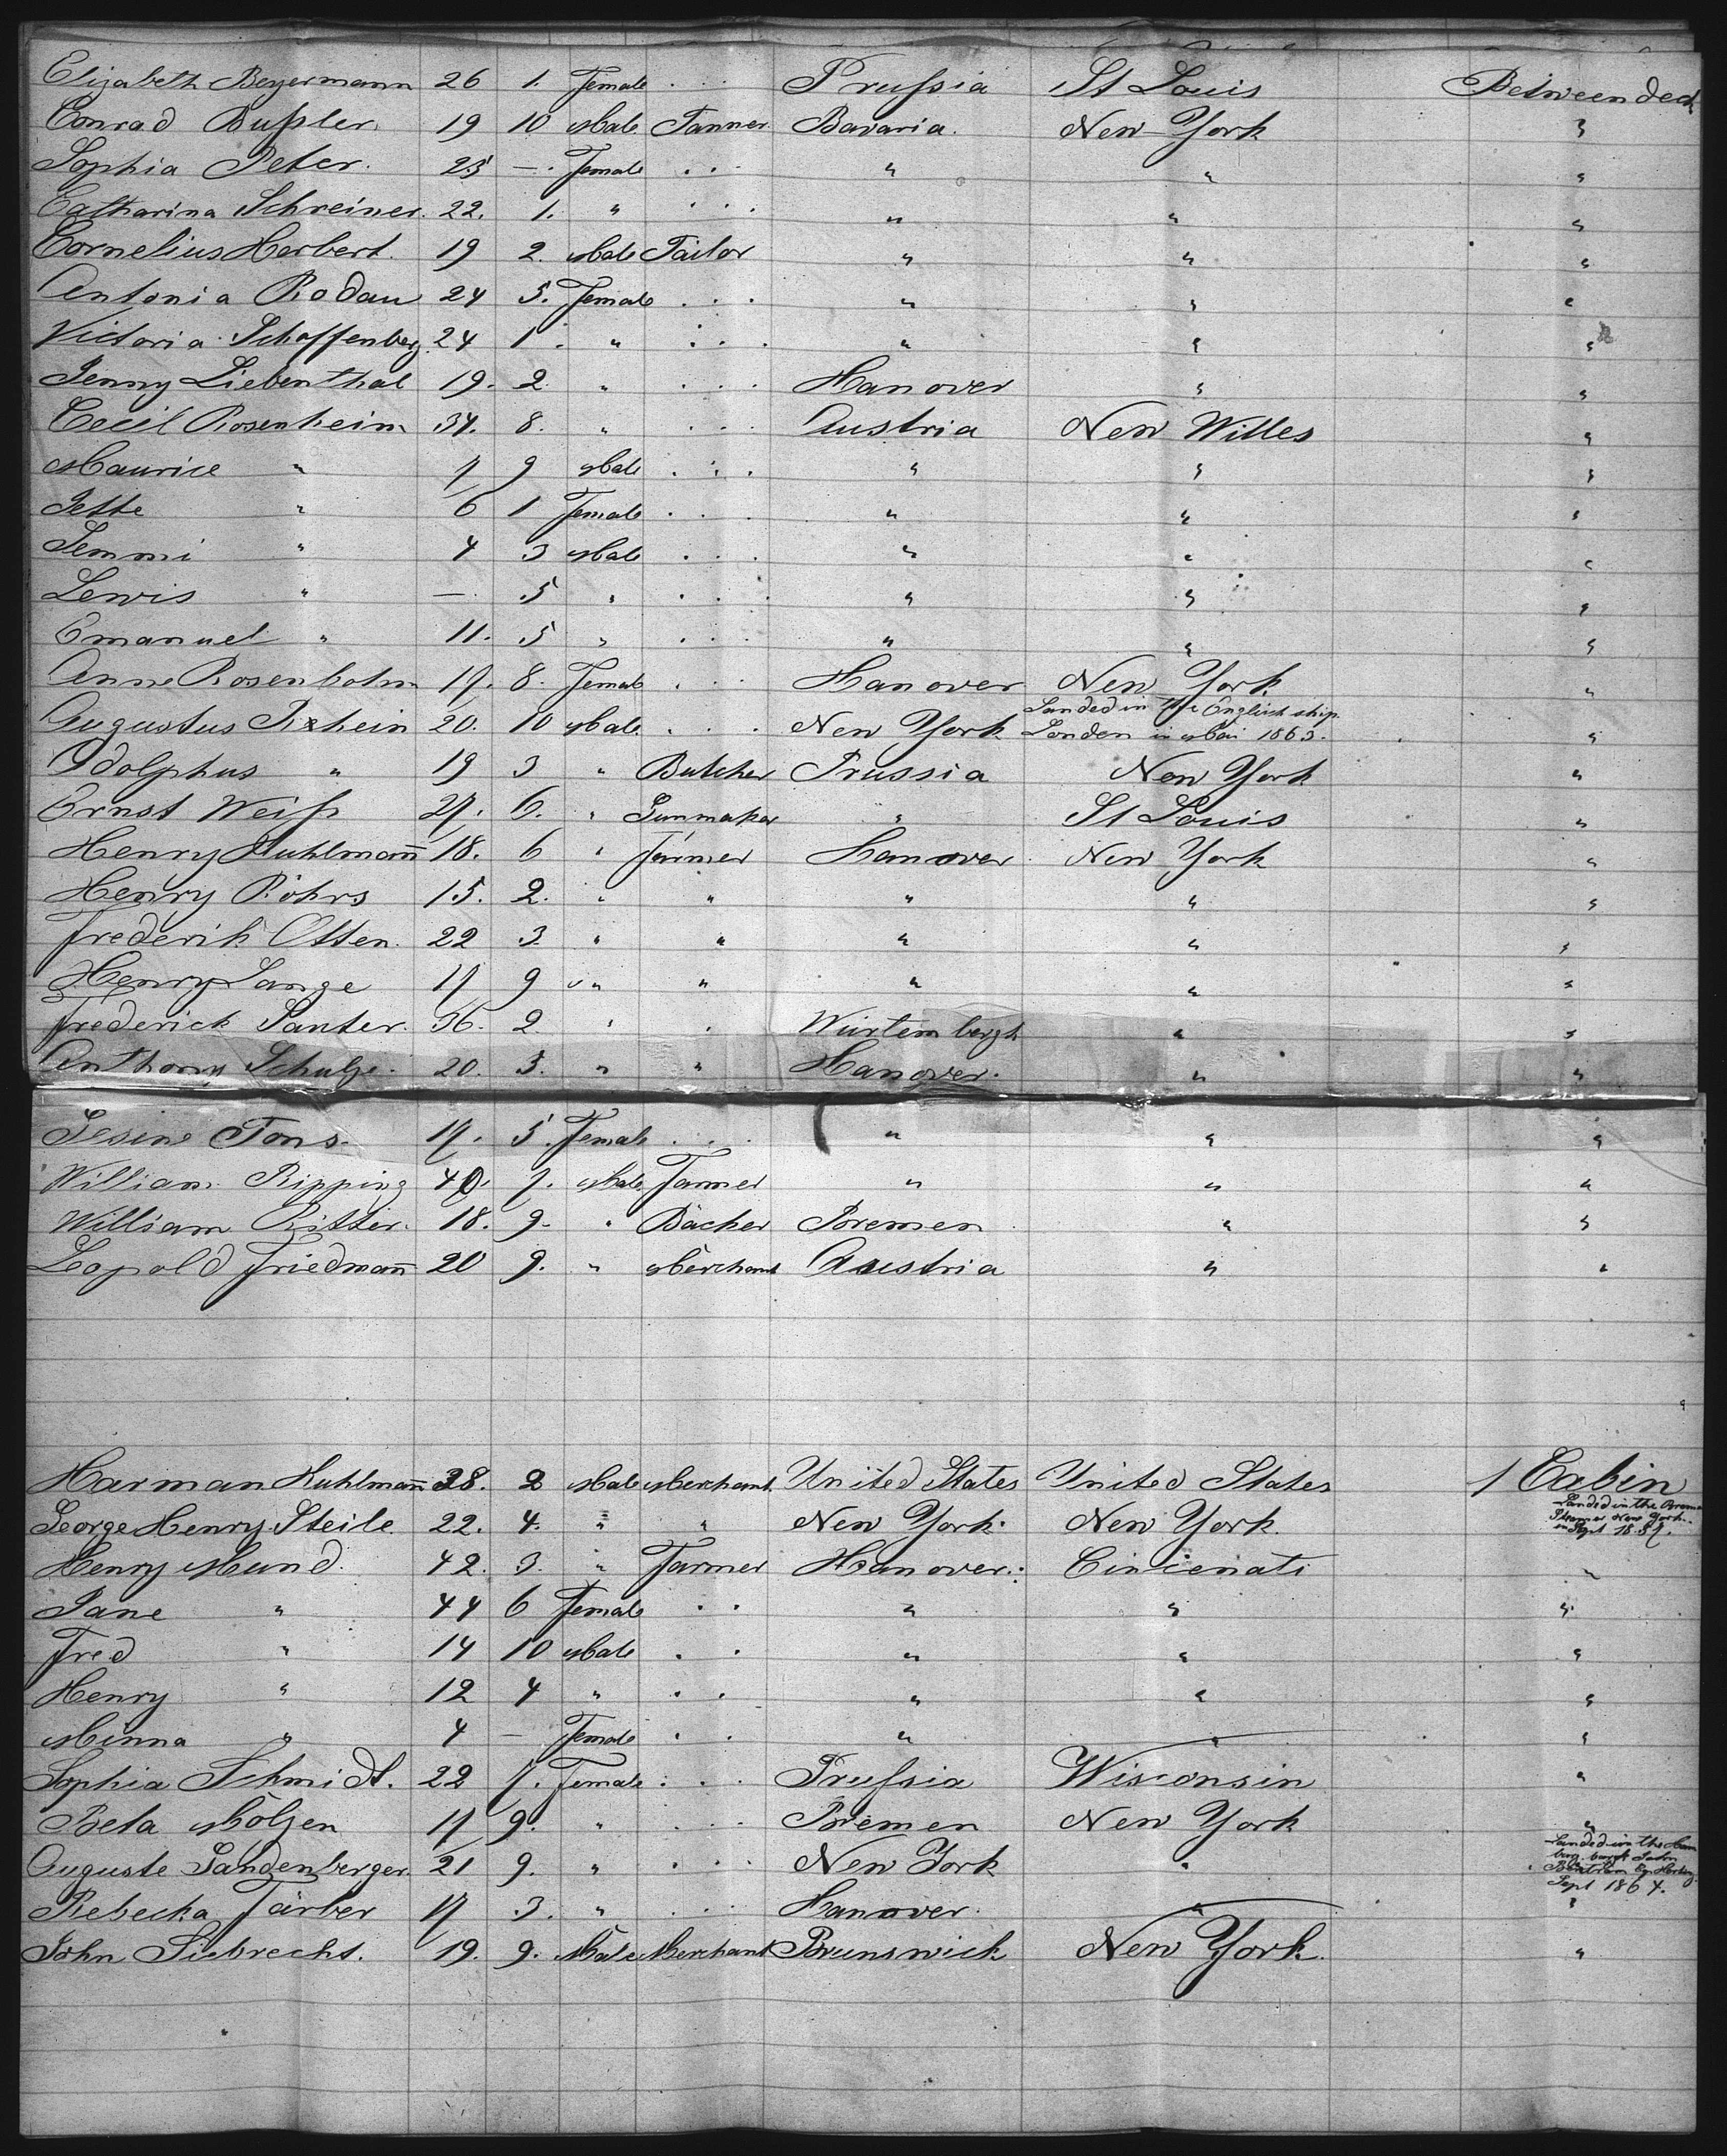 Elizabeth Beyermann 26 1. Female . . . Prußia St Louis Between deck
Conrad Bußler 19 10 Male Tanner Bavaria. New-York "
Sophia Peter. 25 —. Female . . . " " "
Catharina Schreiner. 22. 1. " . . . " " "
Cornelius Herbert. 19 2. Male Tailor " " "
Antonia Rodau 24 5. Female . . . " " "
Victoria Schaffenberg. 24 1. " . . . " " "
Jenny Liebenthal 19. 2. " . . . Hanover " "
Cecil Rosenheim 34. 8. " . . . Austria New Willes "
Maurice " 7 9 Male . . . " " "
Jette " 6 1 Female . . . " " "
Semmi " 4 3 Male . . . " " "
Lewis " — 5 " . . . " " "
Emanuel " 11. 5 " . . . " " "
Anne Rosenbohm 17. 8. Female . . . Hanover New York "
Landed in the English ship
Augustus Rhein 20. 10 Male . . . New York London in Mai 1863. "
Adolphus " 19 3 " Butcher Prussia New York "
Ernst Weiß 27. 6. " Gunmaker " St Louis "
Henry Kuhlmann̄ 18. 6 " Farmer Hanover New York "
Henry Röhrs 15. 2. " " " " "
Frederik Otten. 22 3. " " " " "
Henry Lange 17 9 " " " " "
Frederick Santer. 36. 2 " " Würtembergh " "
Anthony Schulze. 20. 3. " " Hanover. " "
Gesine Tons. 17. 5. Female . . . " " "
William Ripping 40. 7. Male Farmer " " "
William Ritter. 18. 9. " Bäcker Bremen " "
Leopold Friedmann̄ 20 9. " Merchant Austria " "
Harman Kuhlmann̄ 38. 2 Male Merchant. United States United States 1 Cabin
George Henry Steile. 22. 4. " " New York. New York. Landed in the Bremer
Steamer New York.
in Sept 1857.
Henry Mund. 42. 3. " Farmer Hanover. Cincienati "
Jane " 44 6 Female . . " " "
Fred " 14 10 Male . . " " "
Henry " 12 4 " . . " " "
Minna " 4 — Female . . " " "
Sophia Schmidt. 22 7. Female . . . Prußia Wisconsin "
Beta Mölzen 17 9. " . . . Bremen New York "
Auguste Sandenberger. 21 9. " . . . New York " Landed in the Ham
burg. bargk John
Sept 1864.
Rebecka Färber 17 3. " . . . Hanover. " "
John Siebrecht. 19. 9. Male Merchant Brunswick New York. "